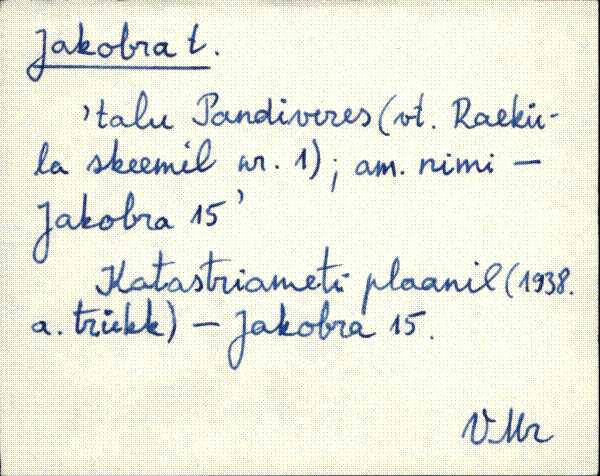 Jakobra t.
'talu Pandiveres (vt. Raekü-
la skeemil nr. 1); am. nimi —
Jakobra 15'
Katastriameti plaanil (1938.
a. trükk) — Jakobra 15.
VMr